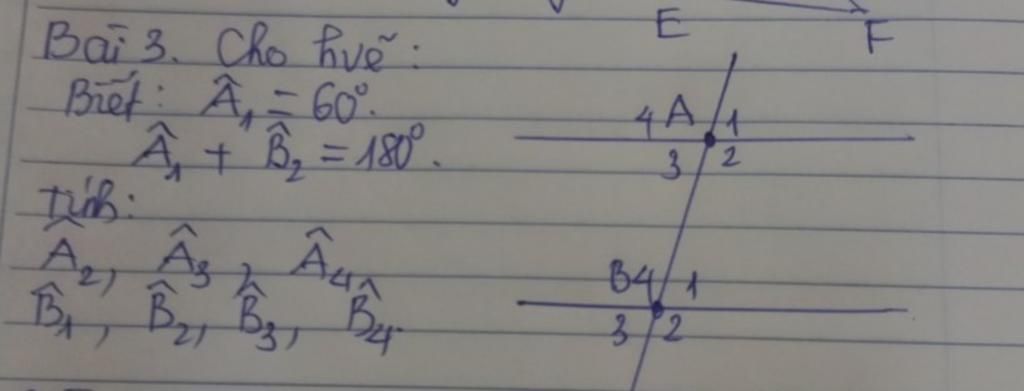 E F
Bài 3. Cho hvẽ:
Biết: Â₁ = 60°.
Â₁ + B̂₂ = 180°.
Tính:
Â₂, Â₃, Â₄
B̂₁, B̂₂, B̂₃, B̂₄.
4 A 1
3 2
B 4 1
3 2